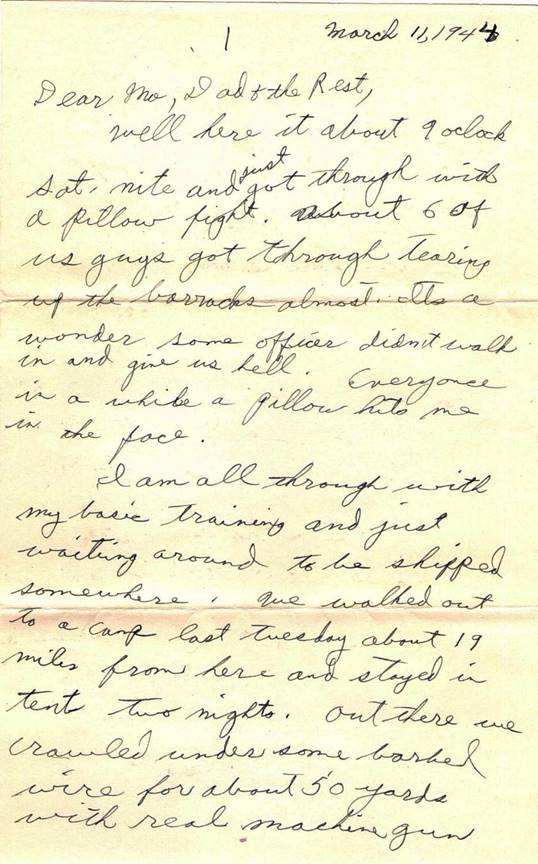 1
March 11, 1944
Dear Mo, Dad & the Rest,
Well here it about 9 oclock
Sat. nite and just got through with
a pillow fight. About 6 of
us guys got through tearing
up the barracks almost. Its a
wonder some officer didn't walk
in and give us hell. Everyonce
in a while a pillow hits me
in the face.
I am all through with
my basic training and just
waiting around to be shipped
somewhere. We walked out
to a camp last tuesday about 19
miles from here and stayed in
tent two nights. Out there we
crawled under some barbed
wire for about 50 yards
with real machine gun